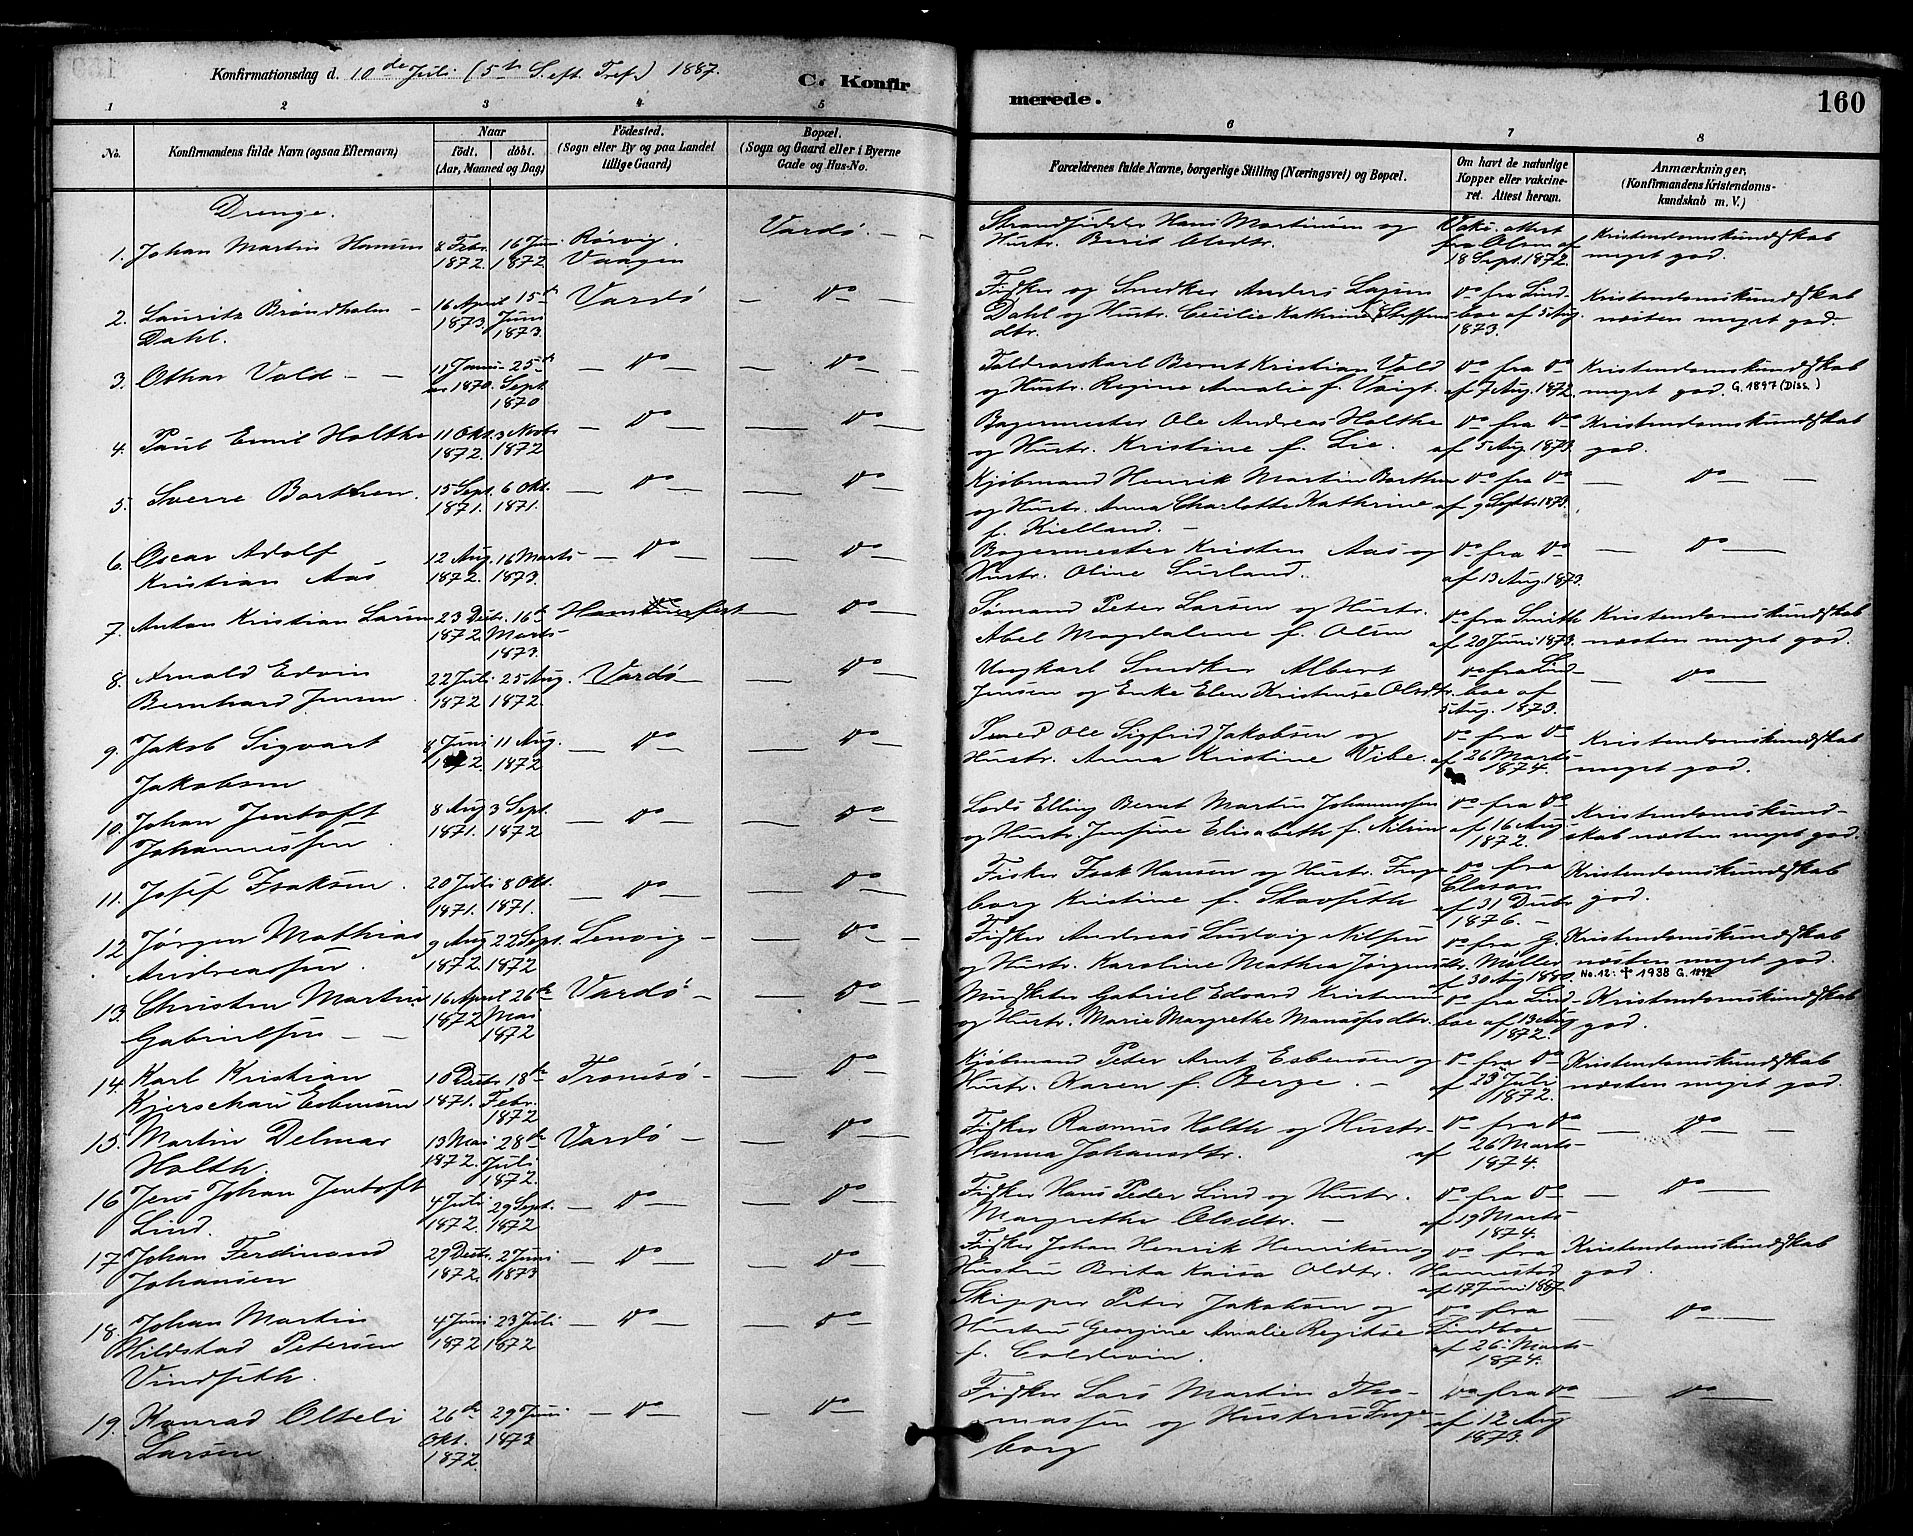 Konfirmationsdag d. 10de Juli (5te S. eft. Tref.) 1887.
C. Konfirmerede.
160
1 2 3 4 5 6 7 8
No.
Konfirmandens fulde Navn (ogsaa Efternavn)
Naar
födt. döbt.
(Aar, Maaned og Dag)
Födested.
(Sogn eller By og paa Landet
tillige Gaard)
Bopæl.
(Sogn og Gaard eller i Byerne
Gade og Hus-No.
Forældrenes fulde Navne, borgerlige Stilling (Næringsvei) og Bopæl.
Om havt de naturlige
Kopper eller vakcine-
ret. Attest herom.
Anmærkninger.
(Konfirmandens Kristendoms-
kundskab m. V.)
Drenge.
1. Johan Martin Hansen 8 Febr. 1872. 16 Juni 1872 Rørvig, Vaagen Vardö. Hans Martinsen og Hustr. Berit Olsdtr. Vaks. attest fra Olsen af 18 Sept. 1872. Kristendomskundskab meget god.
2. Lauritz Bröndholm Dahl. 16 April 1873. 15de Juni 1873. Vardö Do Fisker og Snedker Anders Larsen Dahl og Hustr. Cecilie Kathrine Steffensdtr. Do fra Lindboe af 5 Aug. 1873. Kristendomskundskab næsten meget god.
3. Othar Vold 11 Januar 1870. 25de Sept. 1870 Do Do Toldrorskarl Bernt Kristian Vold og Hustr. Regine Amalie f. Voigt. Do fra Do af 7 Aug. 1872. Kristendomskundskab meget god. G. 1897 (Diss.)
4. Paul Emil Holthe 11 Okt. 1872. 3 Novbr 1872 Do Do Bagermester Ole Andreas Holthe og Hustr. Kristine f. Lie. Do fra Do af 5 Aug. 1873. Kristendomskundskab god.
5. Sverre Barthen. 15 Sept. 1871. 6 Okt. 1871. Do Do Kjöbmand Henrik Martin Barthen og Hustr. Anna Charlotte Kathrine f. Kielland. Do fra Do af 9 Septbr 1873. Do
6. Oscar Adolf Kristian Aas 12 Aug. 1872. 16 Marts 1873. Do Do Bagermester Kristen Aas og Hustr. Oline Surland. Do fra Do af 13 Aug. 1873. Do
7. Anton Kristian Larsen 23 Decbr. 1872 16de Marts 1873. Hammerfest Do Sömand Peter Larsen og Hustr. Abel Magdalene f. Olsen Do fra Smith af 20 Juni 1873. Kristendomskundskab næsten meget god.
8. Arnold Edvin Bernhard Jensen 22 Juli 1872 25 Aug. 1872. Vardö Do Ungkarl Snedker Albert Jensen og Enke Elen Kristense Olsdtr. Do fra Lindboe af 5 Aug. 1873. Do
9. Jakob Sigvart Jakobsen 8 Juni 1872. 11 Aug. 1872 Do Do Smed Ole Sigfrid Jakobsen og Hustr. Anna Kristine Vibe. Do fra Do af 26 Marts 1874. Kristendomskundskab meget god.
10. Johan Jentoft Johannessen 8 Aug 1871. 3 Sept. 1872 Do Do Lods Elling Bernt Martin Johannessen og Hustr. Jensine Elisabeth f. Nilsen Do fra Do af 16 Aug. 1872. Kristendomskundskab næsten meget god.
11. Josef Isaksen. 20 Juli 1871. 8 Okt. 1871. Do Do Fisker Isak Hansen og Hustr. Ingeborg Kristine f. Stavseth Do fra Clason af 31 Decbr 1876. Kristendomskundskab god.
12 Jörgen Mathias Andreassen. 9 Aug 1872 22 Sept. 1872 Lenvig Do Fisker Andreas Ludvig Nilsen og Hustr. Karoline Mathea Jörgensdtr. Do fra G. Möller af 30 Aug 1880. Kristendomskundskab næsten meget god. No. 12: † 1938 G. 1892
13. Christen Martin Gabrielsen 16 April 1872 26de Mai 1872 Vardö Do Gabriel Edvard Kristensen og Hustr. Marie Margrethe Manassesdtr. Do fra Lindboe af 13 Aug 1872. Kristendomskundskab god.
14. Karl Kristian Kjerschau Esbensen 10 Decbr 1871. 18de Febr. 1872 Tromsö Do Kjöbmand Peter Arnt Esbensen og Hustr. Karen f. Berge. Do fra Do af 23 Juli 1872. Kristendomskundskab næsten meget god.
15. Martin Delmar Holth. 13 Mai 1872. 28de Juli 1872. Vardö Do Fisker Rasmus Holth og Hustr. Hanna Johansdtr. Do fra Do af 26 Marts 1874. Do
16 Jens Johan Jentoft Lind. 4 Juli 1872. 29 Sept. 1872 Do Do Fisker Hans Peder Lind og Hustr. Margrethe Olsdtr. Do fra Do af 19 Marts 1874. Do
17 Johan Ferdinand Johansen 29 Decbr. 1872. 2 Juni 1873 Do Do Fisker Johan Henrik Henriksen og Hustru Brita Kaisa Oldtr. Do fra Hannestad af 17 Juni 1887. Kristendomskundskab god.
18. Johan Martin Hildstad Petersen Vindseth. 4 Juni 1872 23 Juli 1872 Do Do Skipper Peter Jakobsen og Hustru Georgine Amalie Regitse f. Coldevin. Do fra Lindboe af 26. Marts 1874. Do
19. Konrad Olteli Larsen. 26de Okt. 1872. 29 Juni 1873 Do Do Fisker Lars Martin Thomassen og Hustru Ingeborg Do fra Do af 12 Aug 1873. Do